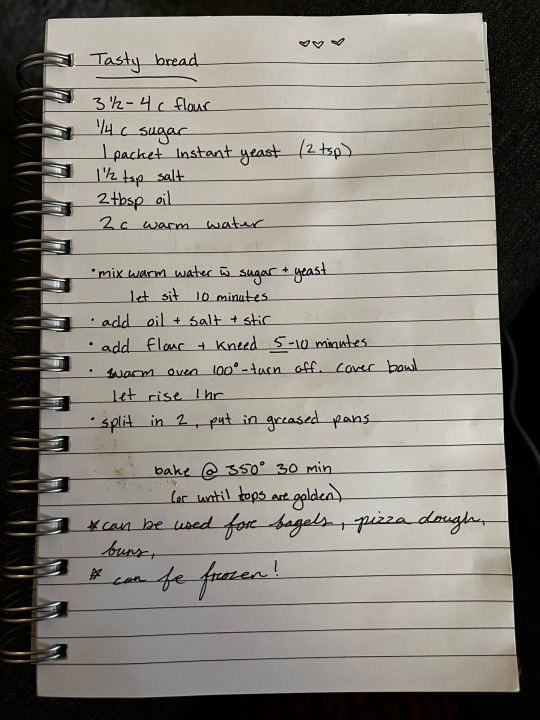 Tasty bread
3 1/2 - 4 c flour
1/4 c sugar
1 packet instant yeast (2 tsp)
1 1/2 tsp salt
2 tbsp oil
2 c warm water
• mix warm water w̄ sugar + yeast
let sit 10 minutes
• add oil + salt + stir
• add flour + kneed 5-10 minutes
• warm oven 100° - turn off. cover bowl
let rise 1 hr
• split in 2, put in greased pans
bake @ 350° 30 min
(or until tops are golden)
* can be used for bagels, pizza dough,
buns,
* can be frozen!